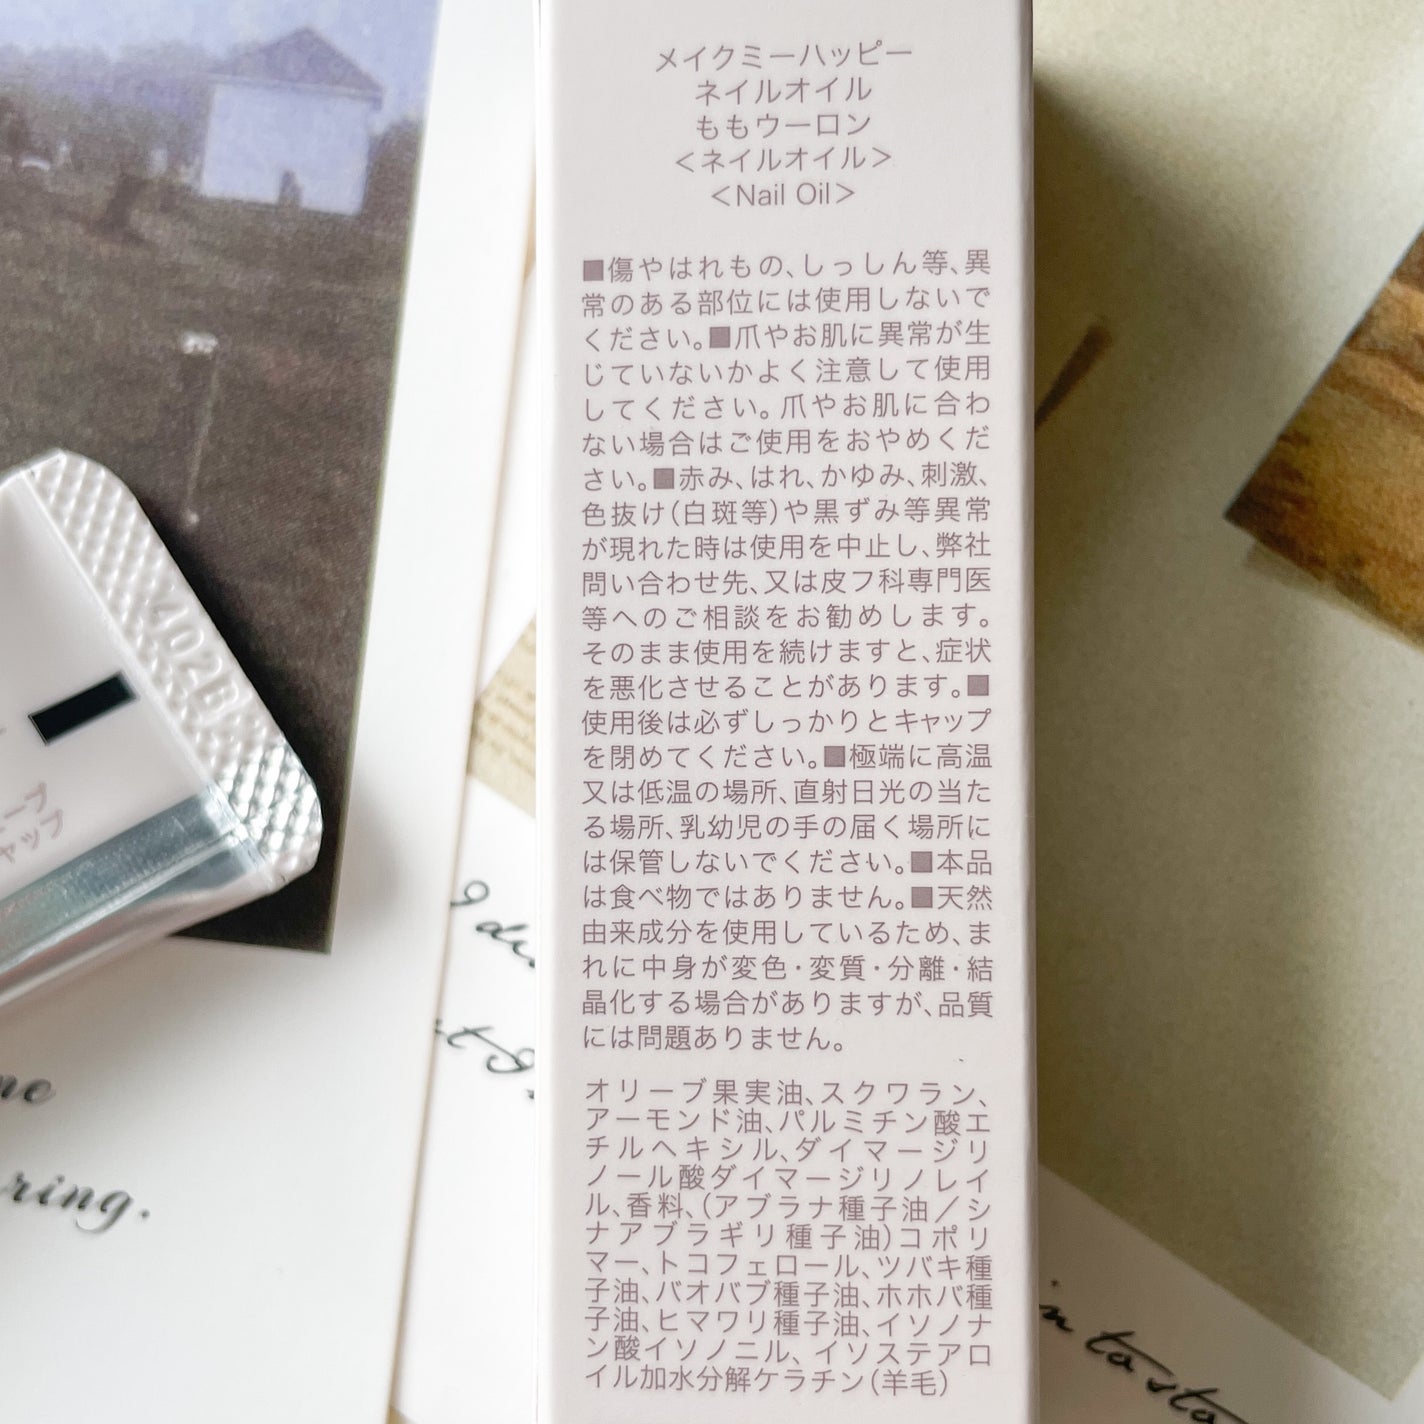 メイクミーハッピー
ネイルオイル
ももウーロン
＜ネイルオイル＞
＜Nail Oil＞
■傷やはれもの、しっしん等、異
常のある部位には使用しないで
ください。■爪やお肌に異常が生
じていないかよく注意して使用
してください。爪やお肌に合わ
ない場合はご使用をおやめくだ
さい。■赤み、はれ、かゆみ、刺激、
色抜け(白斑等)や黒ずみ等異常
が現れた時は使用を中止し、弊社
問い合わせ先、又は皮フ科専門医
等へのご相談をお勧めします。
そのまま使用を続けますと、症状
を悪化させることがあります。■
使用後は必ずしっかりとキャップ
を閉めてください。■極端に高温
又は低温の場所、直射日光の当た
る場所、乳幼児の手の届く場所に
は保管しないでください。■本品
は食べ物ではありません。■天然
由来成分を使用しているため、ま
れに中身が変色・変質・分離・結
晶化する場合がありますが、品質
には問題ありません。
オリーブ果実油、スクワラン、
アーモンド油、パルミチン酸エ
チルヘキシル、ダイマージリ
ノール酸ダイマージリノレイ
ル、香料、(アブラナ種子油／シ
ナアブラギリ種子油)コポリ
マー、トコフェロール、ツバキ種
子油、バオバブ種子油、ホホバ種
子油、ヒマワリ種子油、イソノナ
ン酸イソノニル、イソステアロ
イル加水分解ケラチン(羊毛)
402B
ring.
in to sto